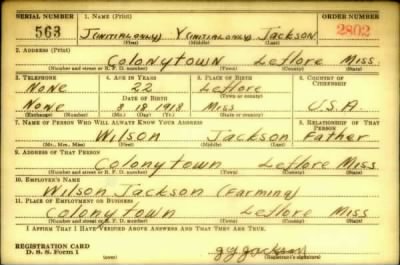 SERIAL NUMBER 1. NAME (Print) ORDER NUMBER
563 J(INITIAL ONLY) Y(INITIAL ONLY) JACKSON 2802
(First) (Middle) (Last)
2. ADDRESS (Print)
Colonytown Leflore Miss
(Number and street or R. F. D. number) (Town) (County) (State)
3. TELEPHONE 4. AGE IN YEARS 5. PLACE OF BIRTH 6. COUNTRY OF CITIZENSHIP
None 22 Leflore
DATE OF BIRTH (Town or county)
None 8 18 1918 Miss U.S.A
(Exchange) (Number) (Mo.) (Day) (Yr.) (State or country)
7. NAME OF PERSON WHO WILL ALWAYS KNOW YOUR ADDRESS 8. RELATIONSHIP OF THAT PERSON
Wilson Jackson Father
(Mr., Mrs., Miss) (First) (Middle) (Last)
9. ADDRESS OF THAT PERSON
Colonytown Leflore Miss
(Number and street or R. F. D. number) (Town) (County) (State)
10. EMPLOYER'S NAME
Wilson Jackson (Farming)
11. PLACE OF EMPLOYMENT OR BUSINESS
Colonytown Leflore Miss
(Number and street or R. F. D. number) (Town) (County) (State)
I AFFIRM THAT I HAVE VERIFIED ABOVE ANSWERS AND THAT THEY ARE TRUE.
REGISTRATION CARD
D. S. S. Form 1 J y Jackson
(Registrant's signature)